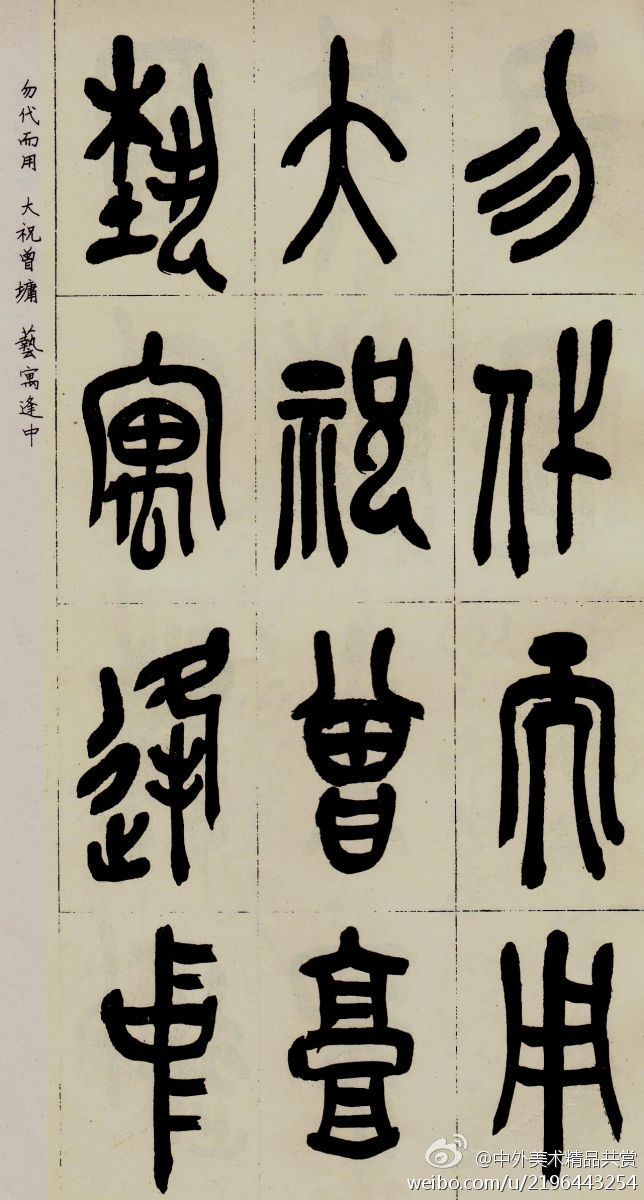 勿代而用
大祝曾墉
藝寓逢中
勿代而用 大祝曾墉 藝寓逢中
@中外美术精品共赏
weibo.com/u/2196443254